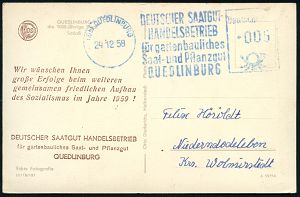 QUEDLINBURG
QUEDLINBURG
24.12.58
DEUTSCHER SAATGUT
HANDELSBETRIEB
für gartenbauliches
Saat- und Pflanzgut
QUEDLINBURG
005
Wir wünschen Ihnen
große Erfolge beim weiteren
gemeinsamen friedlichen Aufbau
des Sozialismus im Jahre 1959 !
DEUTSCHER SAATGUT HANDELSBETRIEB
für gartenbauliches Saat- und Pflanzgut
QUEDLINBURG
Echte Fotografie
Felix
Niederndodeleben
Krs. Wolmirstedt